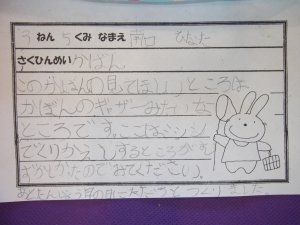 3 ねん 5 くみ なまえ 南口 ひなた
さくひんめい かばん
このかばんの見てほしいところは
かばんのギャザーみたいな
ところです。こまなミシン
でくりかえしするところがむ
ずかしかったのでみてください。
つくりました。